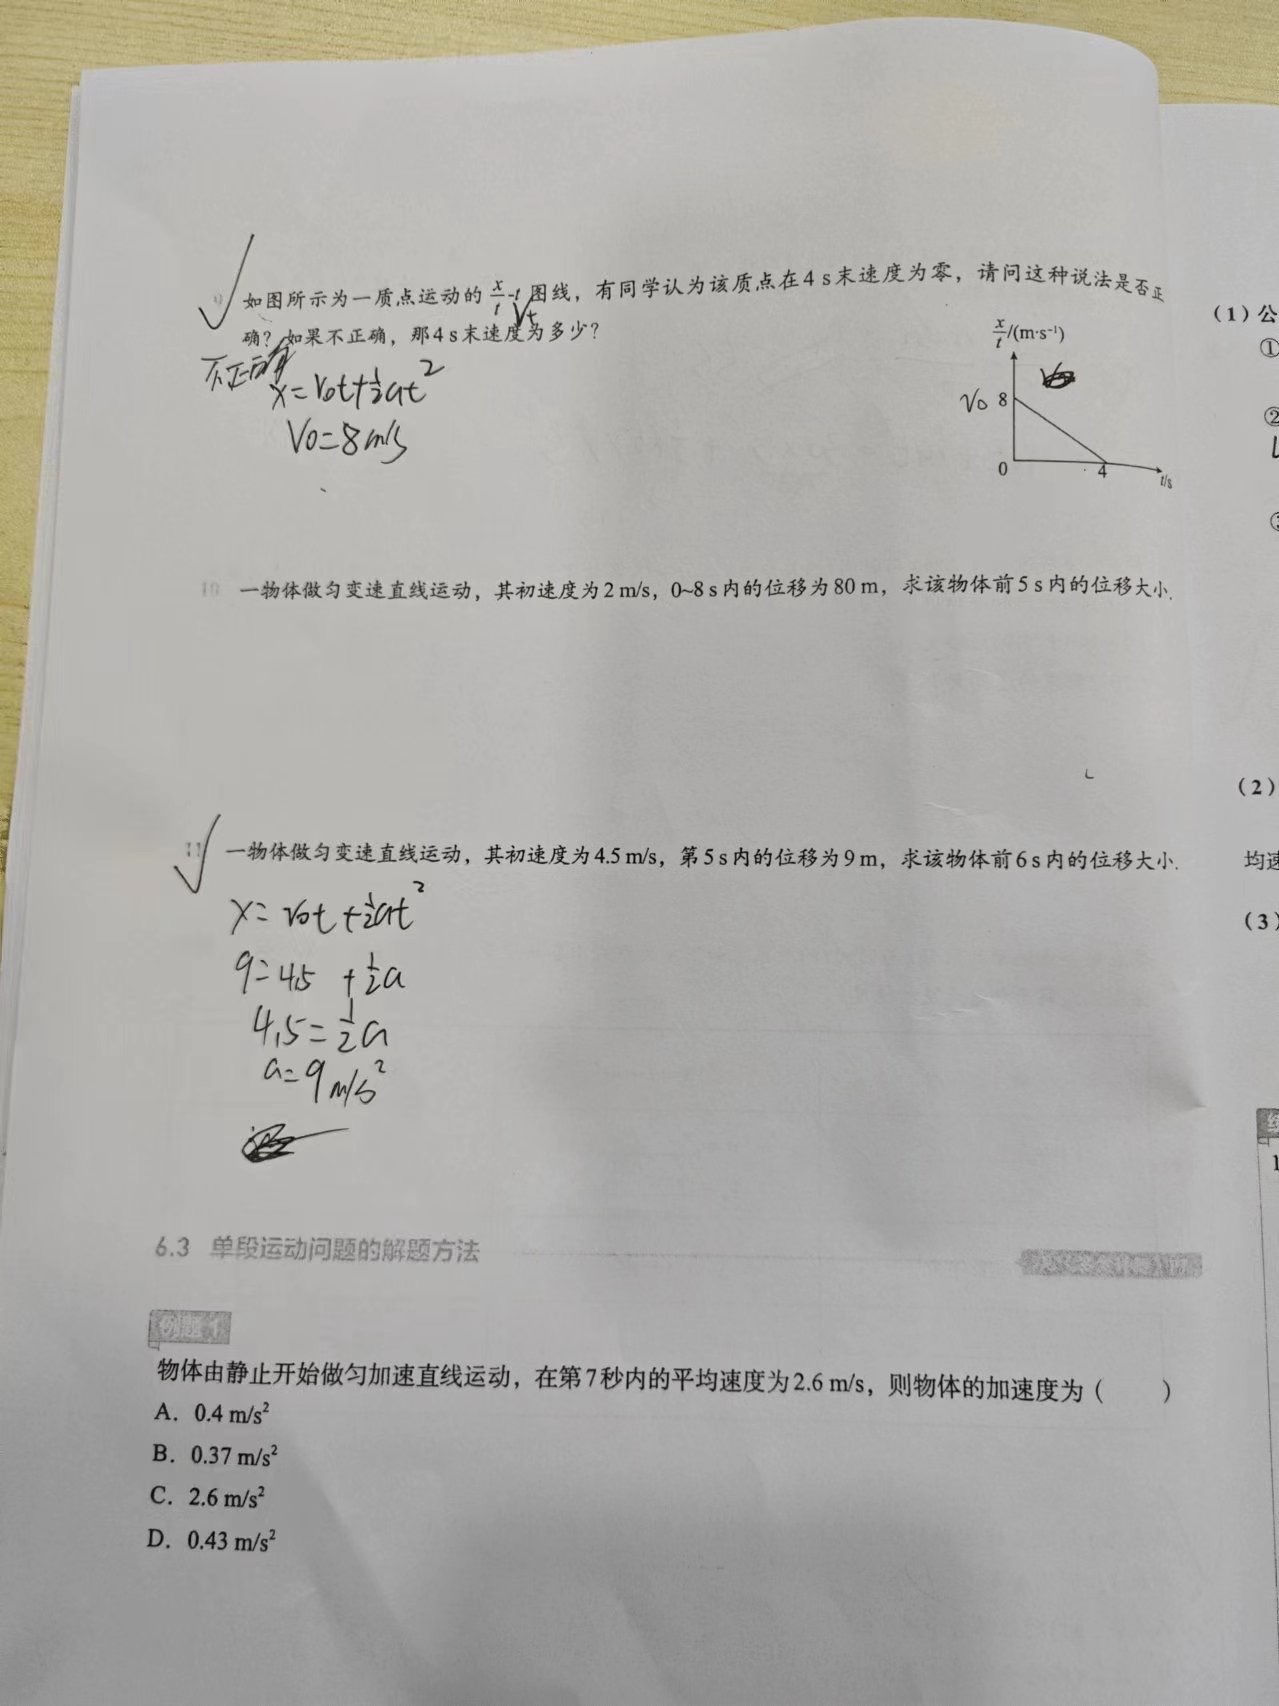 9 如图所示为一质点运动的 x/t-t 图线，有同学认为该质点在4 s末速度为零，请问这种说法是否正
确？如果不正确，那4 s末速度为多少？
不正确
x=v₀t+½at²
V₀=8m/s
x/t/(m·s⁻¹)
V₀ 8
0
4
t/s
10 一物体做匀变速直线运动，其初速度为2 m/s，0~8 s内的位移为80 m，求该物体前5 s内的位移大小.
11 一物体做匀变速直线运动，其初速度为4.5 m/s，第5 s内的位移为9 m，求该物体前6 s内的位移大小.
x=v₀t+½at²
9=4.5 +½a
4.5=½a
a=9m/s²
6.3 单段运动问题的解题方法
例题1
物体由静止开始做匀加速直线运动，在第7秒内的平均速度为2.6 m/s，则物体的加速度为（ ）
A．0.4 m/s²
B．0.37 m/s²
C．2.6 m/s²
D．0.43 m/s²
（1）公
①
②
（2）
均速
（3）
1